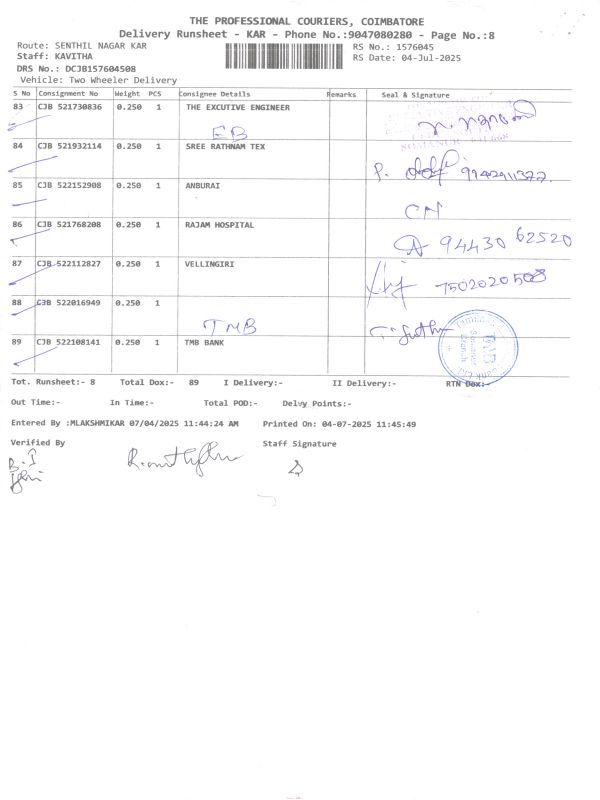 THE PROFESSIONAL COURIERS, COIMBATORE
Delivery Runsheet - KAR - Phone No.:9047080280 - Page No.:8
Route: SENTHIL NAGAR KAR RS No.: 1576045
Staff: KAVITHA RS Date: 04-Jul-2025
DRS No.: DCJB157604508
Vehicle: Two Wheeler Delivery
S No Consignment No Weight PCS Consignee Details Remarks Seal & Signature
83 CJB 521730836 0.250 1 THE EXCUTIVE ENGINEER
EB
84 CJB 521932114 0.250 1 SREE RATHNAM TEX
9942911377
85 CJB 522152908 0.250 1 ANBURAI
CN
86 CJB 521768208 0.250 1 RAJAM HOSPITAL
94430 62520
87 CJB 522112827 0.250 1 VELLINGIRI
7502020508
88 CJB 522016949 0.250 1
TMB
89 CJB 522108141 0.250 1 TMB BANK
Tot. Runsheet:- 8 Total Dox:- 89 I Delivery:- II Delivery:- RTN Dox:-
Out Time:- In Time:- Total POD:- Delvy Points:-
Entered By :MLAKSHMIKAR 07/04/2025 11:44:24 AM Printed On: 04-07-2025 11:45:49
Verified By Staff Signature